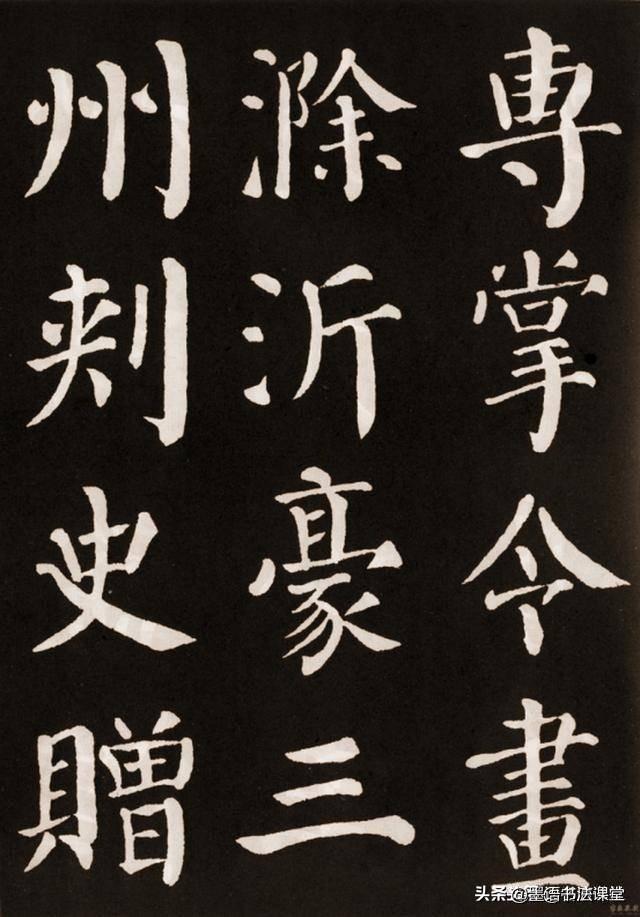 專掌令畫
滁沂豪三
州刺史贈
头条@墨语书法课堂